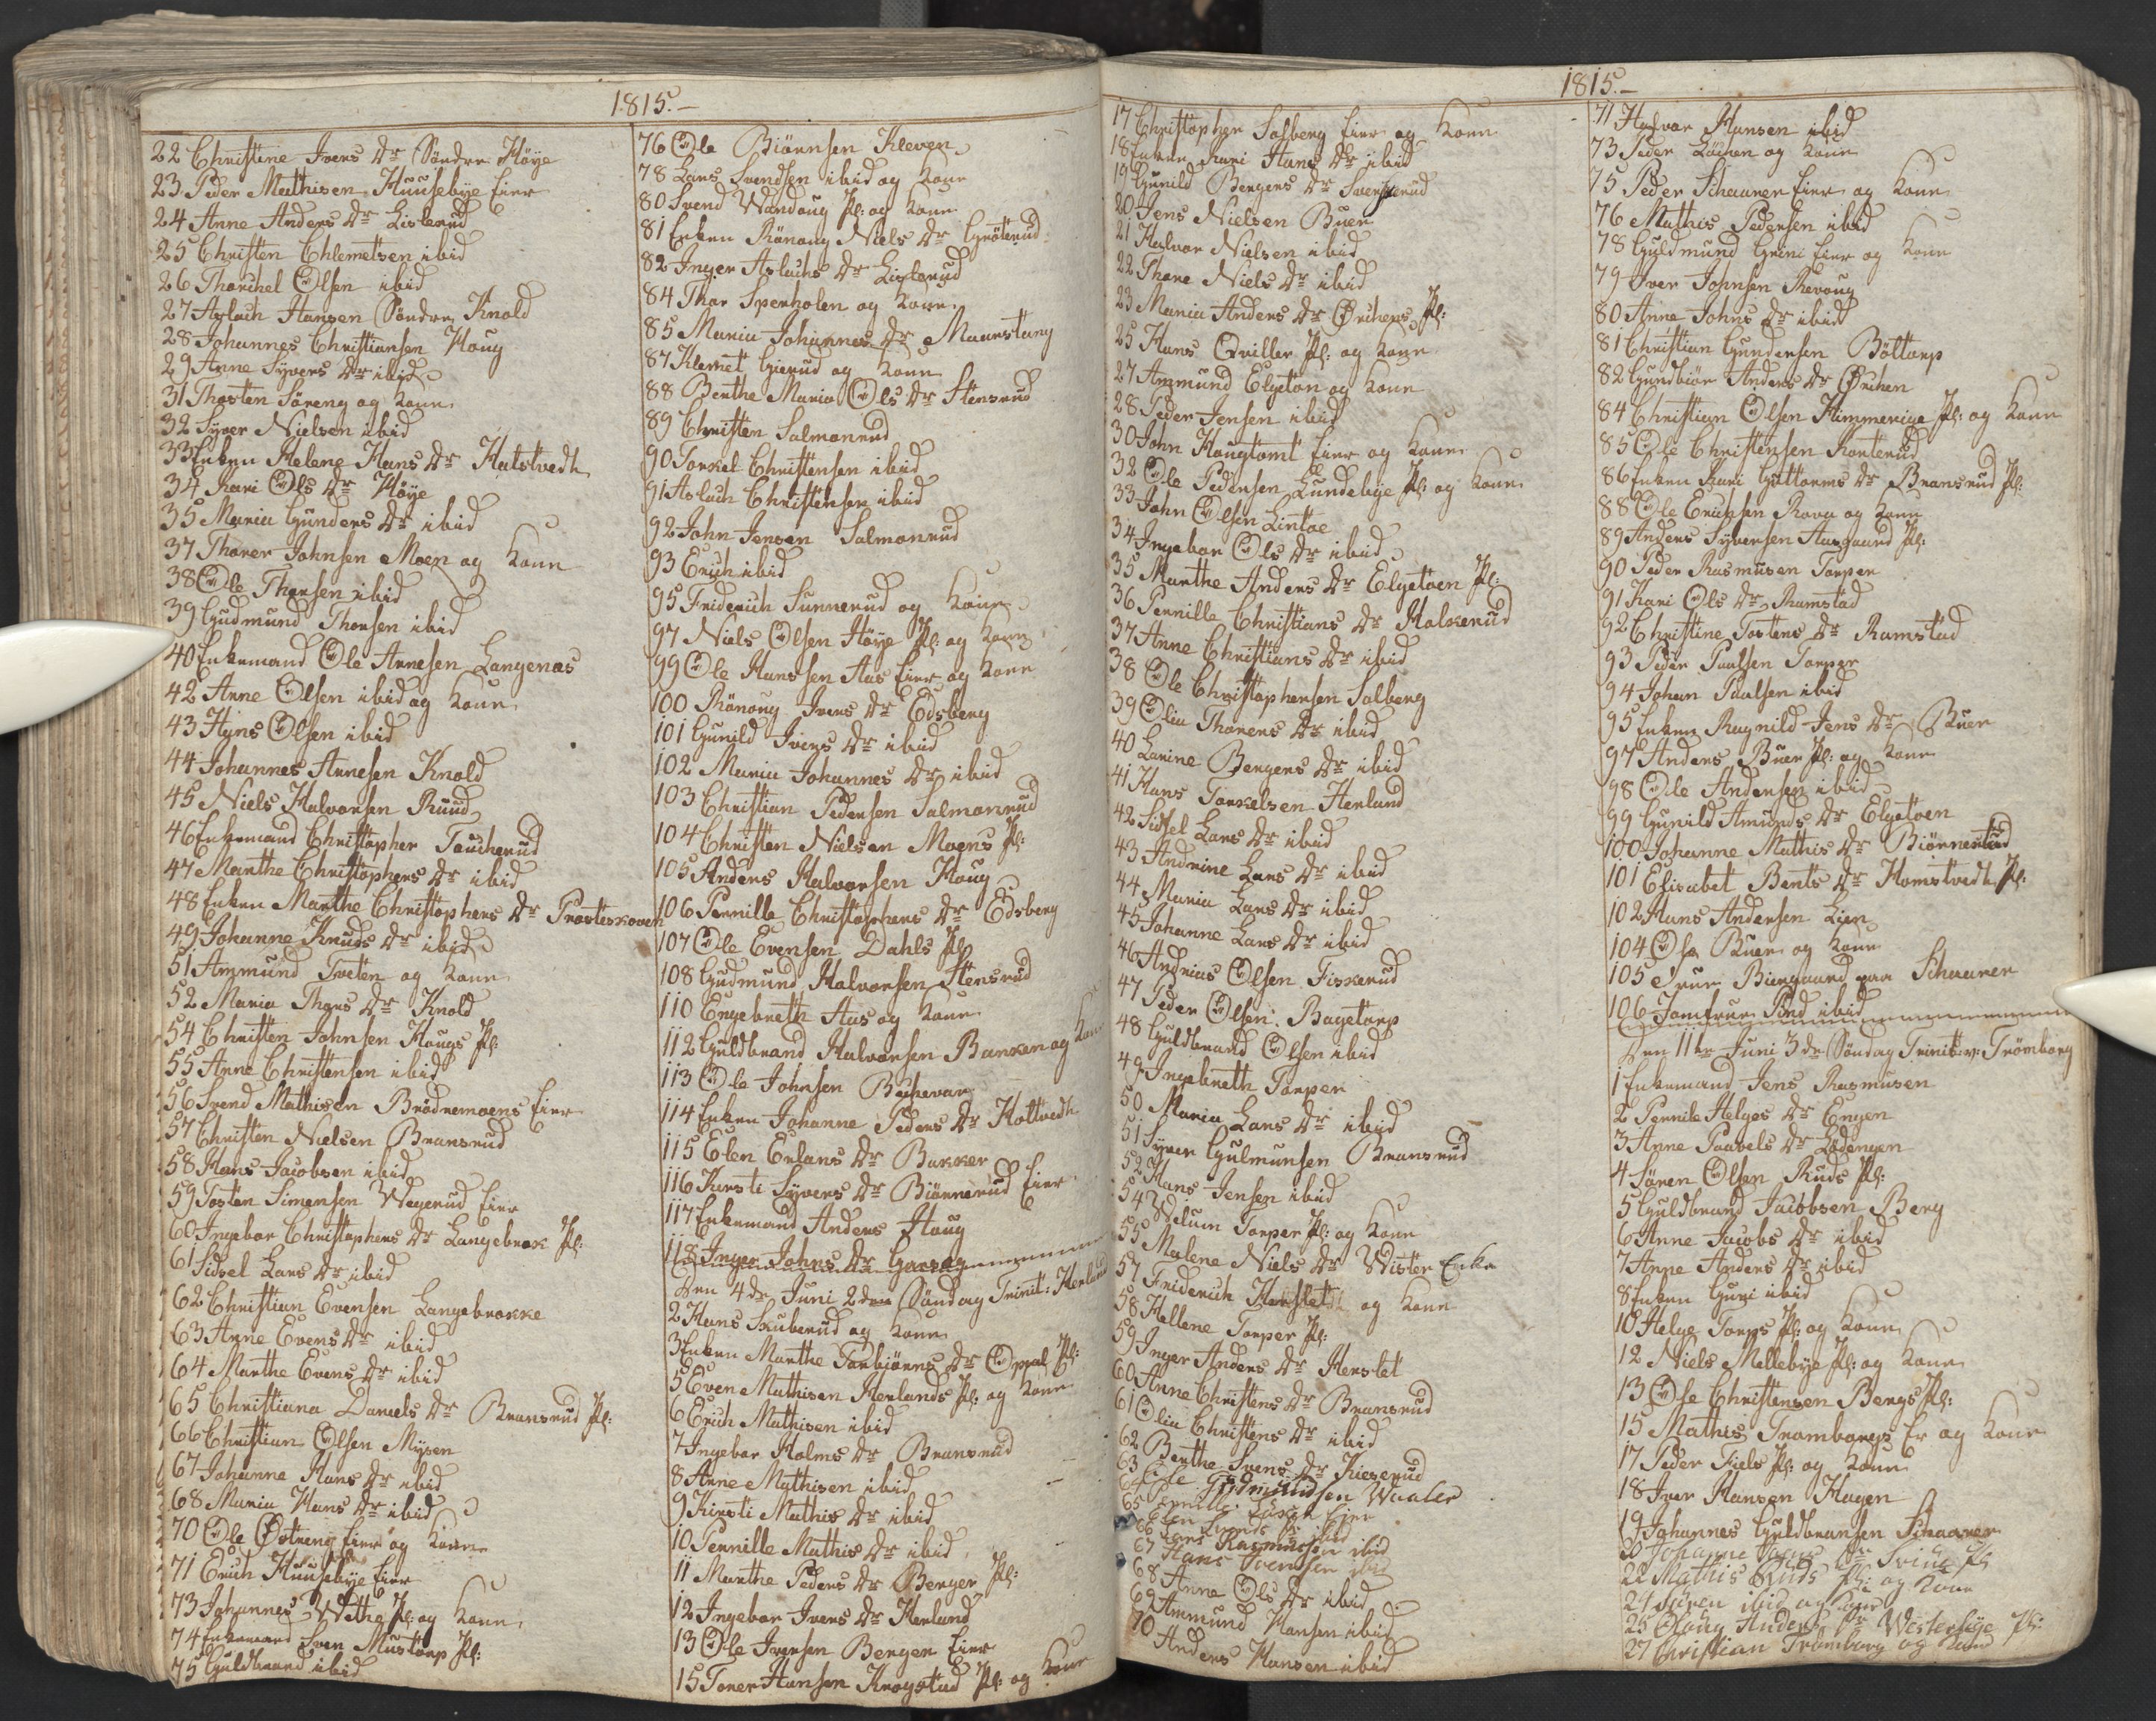 1815.-
22 Christine Ivers Dr Söndre Höye
23. Peder Mathisen Huusebÿe Eier
24 Anne Anders Dr Listerud
25 Christen Chlemetsen ibid
26 Thorchel Olsen ibid
27 Aslach Hansen Söndre Knold
28 Johannes Christiansen Houg
29 Anne Syvers Dr ibid
31 Thosten Söreng og Kone
32 Syver Nielsen ibid
33 Enken Helene Hans Dr Hatstvedt
34 Kari Ols Dr Höye
35 Maria Gunders Dr ibid
37 Thorer Johnsen Moen og Kone
38 Ole Thorsen ibid
39 Gudmund Thorsen ibid
40 Enkemand Ole Arnesen Langenæs
42 Arne Olsen ibid og Kone
43 Hans Olsen ibid
44 Johannes Arnesen Knold
45 Niels Halvorsen Ruud
46 Enkemand Christopher Toucherud
47 Marthe Christophers Dr ibid
48 Enken Marthe Christophers Dr Prosteskoven
49 Johanne Knuds Dr ibid
51 Ammund Tveten og Kone
52 Maria Thors Dr Knold
54 Christen Johnsen Hougs Pl:
55 Anne Christensen ibid
56 Svend Mathisen Brödremoens Eier
57 Christen Nielsen Bransrud
58 Hans Jacobsen ibid
59 Tosten Simensen Wegerud Eier
60 Ingebor Christophers Dr Langebrek Pl:
61 Sidsel Lars Dr ibid
62 Christian Evensen Langebrekke
63 Anne Evens Dr ibid
64 Marthe Evens Dr ibid
65 Christiana Daniels Dr Bransrud Pl:
66 Christian Olsen Mysen
67 Johanna Hans Dr ibid
68 Maria Hans Dr ibid
70 Ole Östreng Eier og Kone
71 Erich Huusebye Eier
73 Johannes Wethe Pl: og Kone
74 Enkemand Sven Mustorp Pl:
75 Guldbrand ibid
76 Ole Biörnsen Kleven
78 Lars Svendsen ibid og Kone
80 Svend Wandoug Pl: og Kone
81 Enken Rönoug Niels Dr Gröterud
82 Inger Aslachs Dr Listerud
84 Thor Sperholen og Kone
85 Maria Johannes Dr Maurstang
87 Klemet Gierud og Kone
88 Berthe Maria Ols Dr Stensrud
89 Christen Salmonrud
90 Torkel Christensen ibid
91 Aslach Christensen ibid
92 John Jensen Salmonrud
93 Erich ibid
95 Friderich Sunnerud og Kone
97 Niels Olsen Höye Pl: og Kone
99 Ole Hansen Aas Eier og Kone
100 Rönoug Ivers Dr Edsberg
101 Gunild Ivers Dr ibid
102 Maria Johannes Dr ibid
103 Christian Pedersen Salmonrud
104 Christen Nielsen Moens Pl:
105 Anders Halvorsen Houg
106 Pernille Christophers Dr Edsberg
107 Ole Evensen Dahls Pl
108 Gudmund Halvorsen Stensrud
110 Engebreth Aas og Kone
112 Guldbrand Halvorsen Banken og Kone
113 Ole Johnsen Bechevar
114 Enken Johanne Peders Dr Kottvedt
115 Elen Erlans Dr Bakker
116 Kirsti Syvers Dr Biönnerud Eier
117 Enkemand Anders Houg
118 Inger Johns Dr
Den 4de Juni 2den Söndag Trinit: Herland
2 Hans Skuberud og Kone
3 Enken Marthe Torbjörns Dr Oppal Pl:
5 Even Mathisen Herlands Pl: og Kone
6 Erich Mathisen ibid
7 Ingebor Holms Dr Bransrud
8 Arne Mathisen ibid
9 Kirsti Mathis Dr ibid
10 Pernille Mathis Dr ibid
11 Marthe Peders Dr Berger Pl:
12 Ingebor Ivers Dr Herland
13 Ole Iversen Berger Eier
15 Torer Hansen Krogstad Pl: og Kone
1815.-
17 Christopher Solberg Eier og Kone
18 Enken Kari Hans Dr ibid
19 Gunild Bergers Dr Sverserud
20 Jens Nielsen Buer
21 Halvor Nielsen ibid
22 Thore Niels Dr ibid
23 Maria Anders Dr Örchens Pl:
25 Hans Qviller Pl: og Kone
27 Ammund Elgeton og Kone
28 Peder Jensen ibid
30 John Hougtomt Eier og Kone
32 Ole Pedersen Lundebye Pl: og Kone
33 John Olsen Lintoe
34 Ingebor Ols Dr ibid
35 Marthe Anders Dr Elgetoen Pl:
36 Pernille Christians Dr Holkerud
37 Anne Christians Dr ibid
38 Ole Christophersen Solberg
39 Olia Thorers Dr ibid
40 Larine Bergers Dr ibid
41 Hans Torkelsen Herland
42 Sidsel Lars Dr ibid
43 Andrine Lars Dr ibid
44 Maria Lars Dr ibid
45 Johanne Lars Dr ibid
46 Andreas Olsen Fiskerud
47 Peder Olsen Bagetorp
48 Guldbrand Olsen ibid
49 Ingebreth Torper
50 Maria Lars Dr ibid
51 Syver Gulmunsen Bransrud
52 Hans Jensen ibid
54 Wilum Torper Pl: og Kone
55 Malene Niels Dr Wister Enke
57 Friderich Herslet og Kone
58 Hellene Torper Pl:
59 Inger Anders Dr Herslet
60 Anne Christens Dr Bransrud
61 Olia Christens Dr ibid
62 Berthe Svens Dr Kieserud
63 Ole Gudmundsen Waaler
64 Pernille Eier
65 Elen Svends Dr ibid
66 Lars Rasmussen ibid
67 Hans Svendsen ibid
68 Anne Ols Dr ibid
69 Ammund Hansen ibid
70 Anders Hansen ibid
71 Halvor Hansen ibid
73 Peder Löiren og Kone
75 Peder Schaarer Eier og Kone
76 Mathis Pedersen ibid
78 Guldmund Grini Eier og Kone
79 Iver Johnsen Revoug
80 Anne Johns Dr ibid
81 Christian Gundersen Böltorp
82 Gundbiör Anders Dr Örchen
84 Christian Olsen Himmerige Pl: og Kone
85 Ole Christensen Korterud
86 Enken Kari Guttorms Dr Bransrud Pl:
88 Ole Erichsen Rova og Kone
89 Anders Syversen Aasgaard Pl:
90 Peder Rasmusen Torper
91 Kari Ols Dr Ramstad
92 Christine Tostens Dr Ramstad
93 Peder Paulsen Torper
94 Johan Paulsen ibid
95 Enken Ragnild Jens Dr Buer
97 Anders Buer Pl: og Kone
98 Ole Andersen ibid
99 Gunild Amunds Dr Elgetoen
100 Johanne Mathis Dr Biönnerud
101 Elisabet Bents Dr Homstvedt Pl:
102 Hans Andersen Lien
104 Ole Buer og Kone
105 Frue Biergaard paa Schaarer
106 Jomfrue Pind ibid
Den 11te Juni 3de Söndag Trinit: v: Trömborg
1 Enkemand Jens Rasmusen
2 Pernile Helges Dr Engen
3 Anne Paavels Dr Lödengen
4 Sören Olsen Ruds Pl:
5 Guldbrand Jacobsen Berg
6 Anne Jacobs Dr ibid
7 Anne Anders Dr ibid
8 Enken Guri ibid
10 Helge Torps Pl: og Kone
12 Niels Mellebye Pl: og Kone
13 Ole Christensen Bergs Pl:
15 Mathis Tromborgs Er og Kone
17 Peder Fiels Pl: og Kone
18 Iver Hansen Hagen
19 Johannes Guldbransen Schaarer
20 Johanne Dr Pl
22 Mathis Ruds Pl: og Kone
24 Sören ibid og Kone
25 Oloug Anders Dr Westerbye Pl:
27 Christian Tromborg og Kone